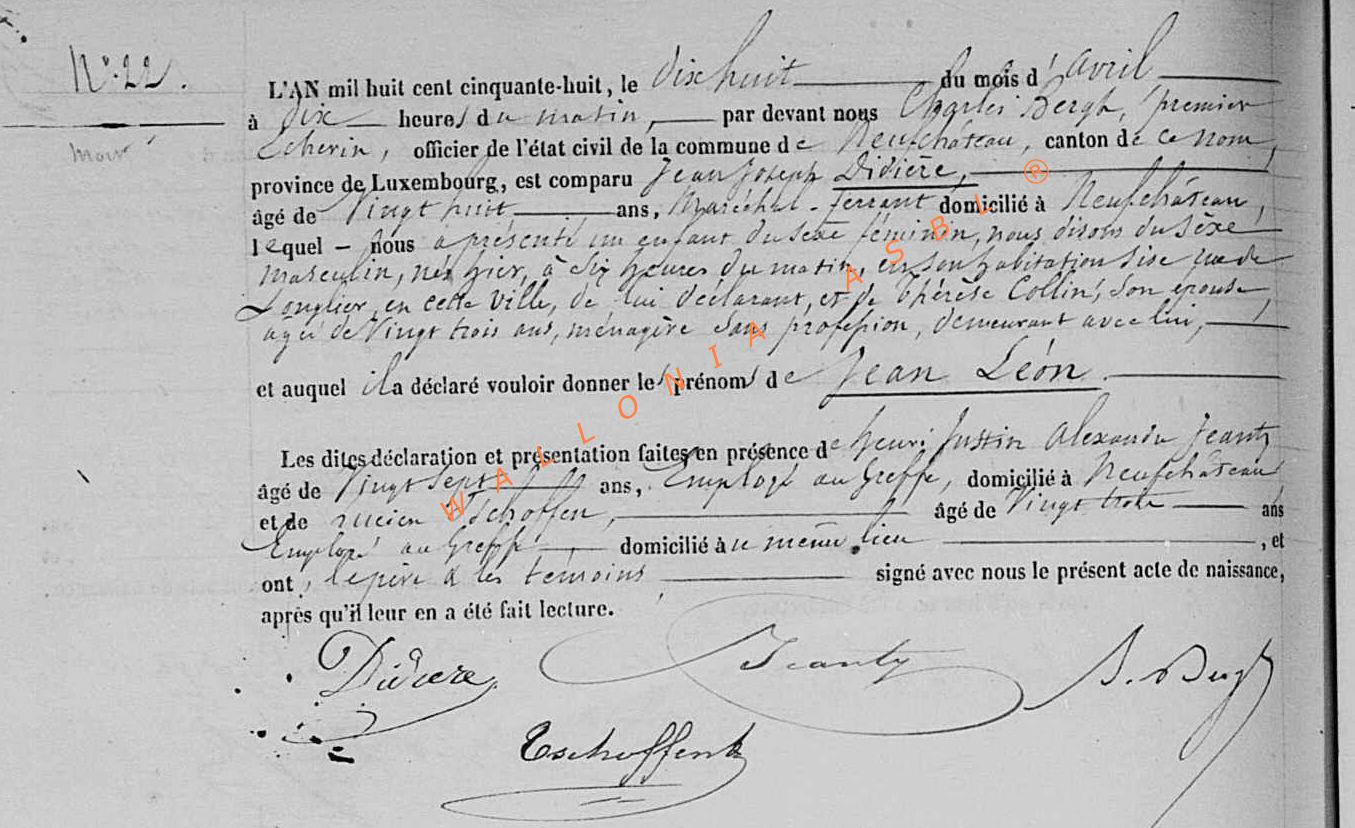 N°. 22.
L'AN mil huit cent cinquante-huit, le dix huit du mois d'avril
à dix heures du matin, par devant nous Charles Bergh, premier
Echevin, officier de l'état civil de la commune de Neufchâteau, canton de ce nom,
province de Luxembourg, est comparu Jean Joseph Didière,
âgé de Vingt huit ans, Maréchal-ferrant domicilié à Neufchâteau,
lequel nous a présenté un enfant du sexe féminin, nous disons du sèxe
masculin, né hier, à six heures du matin, en son habitation sise rue de
Longlier, en cette ville, de lui déclarant, et de Thérèse Collin, son épouse,
agée de Vingt trois ans, ménagère sans profession, demeurant avec lui,
et auquel il a déclaré vouloir donner les prénoms de Jean Léon.
Les dites déclaration et présentation faites en présence de henri Justin Alexandre Jeanty
âgé de Vingt sept ans, Employé au Greffe, domicilié à Neufchâteau
et de Lucien Tschoffen, âgé de Vingt trois ans
Employé au Greffe, domicilié au même lieu, et
ont, le père & les témoins signé avec nous le présent acte de naissance,
après qu'il leur en a été fait lecture.
Didière
Jeanty
Tschoffen
WALLONIA ASBL ®